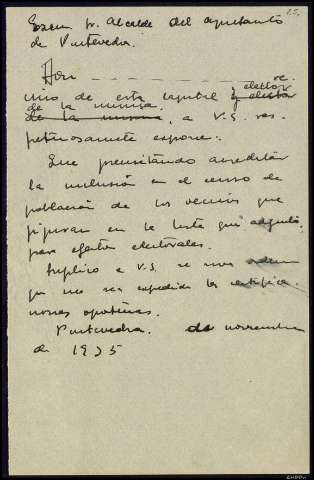 Excmo Sr. Alcalde del ayuntamto
de Pontevedra.
Don ve
cino de esta capital y elector
de la misma, a V.S. res
petuosamente expone:
Que precisando acreditar
la inclusión en el censo de
población de los vecinos que
figuran en la lista que adjunto
para efectos electorales.
Suplico a V.S. se sirva ordenar
que me sea expedida la certifica
oportunas.
Pontevedra. de noviembre
de 1935